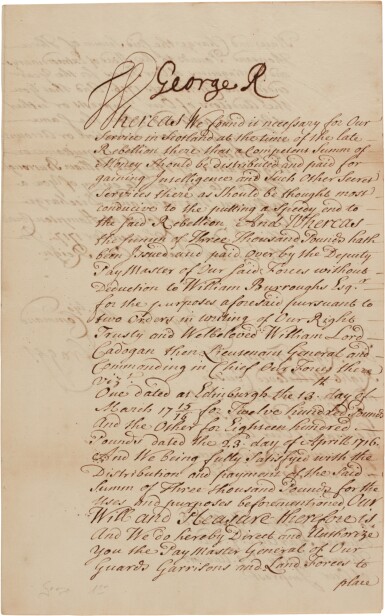 George R
Whereas We found it necessary for Our
Service in Scotland at the time of the late
Rebellion there that a Competent Summ of
Money should be distributed and paid for
gaining Intelligence and Such other Secret
Services there as should be thought most
conducive to the putting a Speedy end to
the said Rebellion And Whereas
the summ of Three Thousand Pounds hath
been Issued and paid over by the Deputy
Pay Master of Our said Forces without
Deduction to William Burroughs Esqr.
for the purposes aforesaid pursuant to
two Orders in writing of Our Right
Trusty and Welbeloved William Lord
Cadogan then Lieutenant General and
Commanding in Chief Our Forces there
vizt.
One dated at Edinburgh the 13th day of
March 17 15/16 for Twelve hundred Pounds
And the Other for Eighteen hundred
Pounds dated the 23d day of Aprill 1716.
And We being fully Satisfyed with the
Distribution and payment of the said
Summ of Three Thousand Pounds for the
Uses and purposes beforementioned Our
Will and Pleasure therefore is
And We do hereby Direct and Authorize
You the Pay Master General of Our
Guards Garrisons and Land Forces to
place